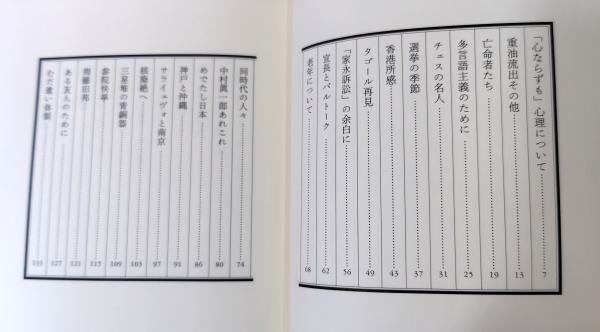 「心ならずも」心理について 7
重油流出その他 13
亡命者たち 19
多言語主義のために 25
チェスの名人 31
選挙の季節 37
香港所感 43
タゴール再見 49
「家永訴訟」の余白に 56
宣長とバルトーク 62
老年について 68
同時代の人々 74
中村真一郎あれこれ 80
めでたし日本 86
神戸と沖縄 91
サライェヴォと南京 97
核廃絶へ 103
三星堆の青銅器 109
115
121
ある友人のために 127